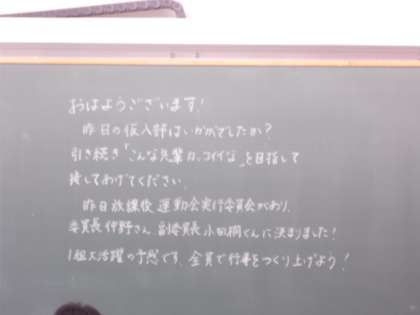 おはようございます!
昨日の仮入部はいかがでしたか?
引き続き「こんな先輩カッコイイな」を目指して
接してあげてください.
昨日放課後 運動会実行委員会があり、
委員長 仲野さん 副委員長 小田桐くんに決まりました!
1組大活躍の予感です. 全員で行事をつくり上げよう!